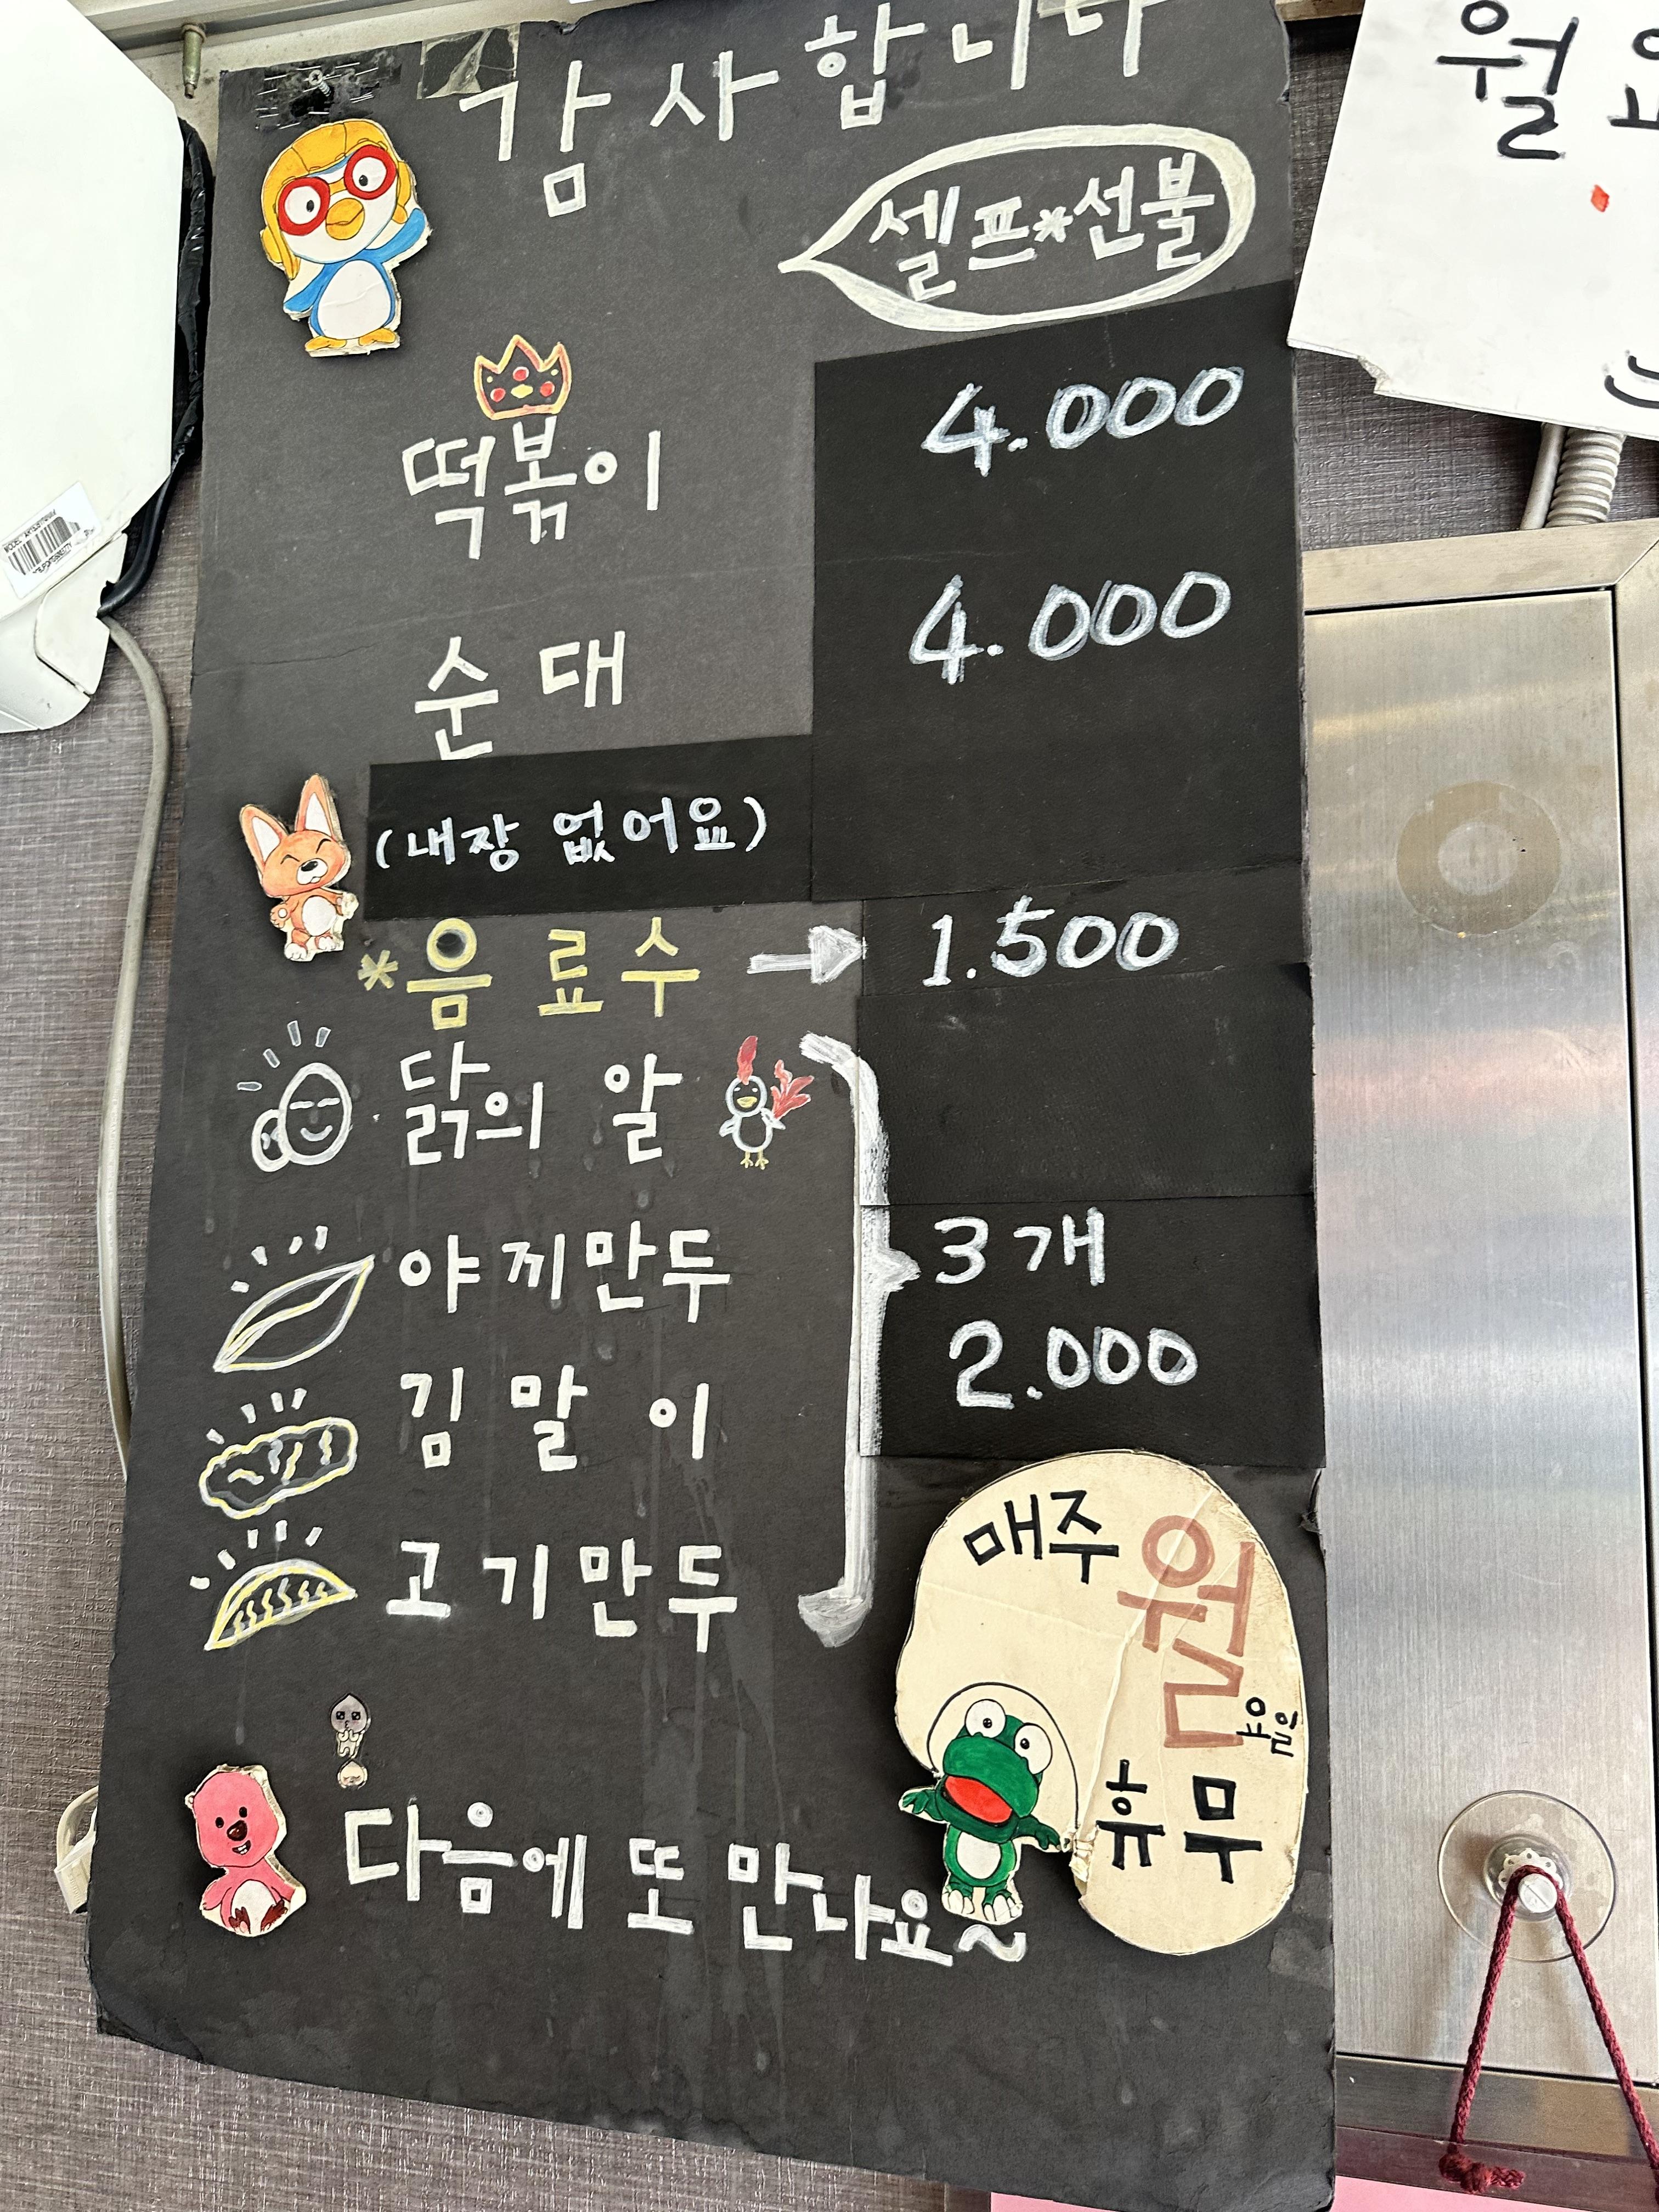 감사합니다
셀프*선불
떡볶이 4.000
순대 4.000
(내장 없어요)
*음료수 → 1.500
닭의 알
야끼만두
김말이
고기만두
3개
2.000
매주
월요일
휴무
다음에 또 만나요~
월